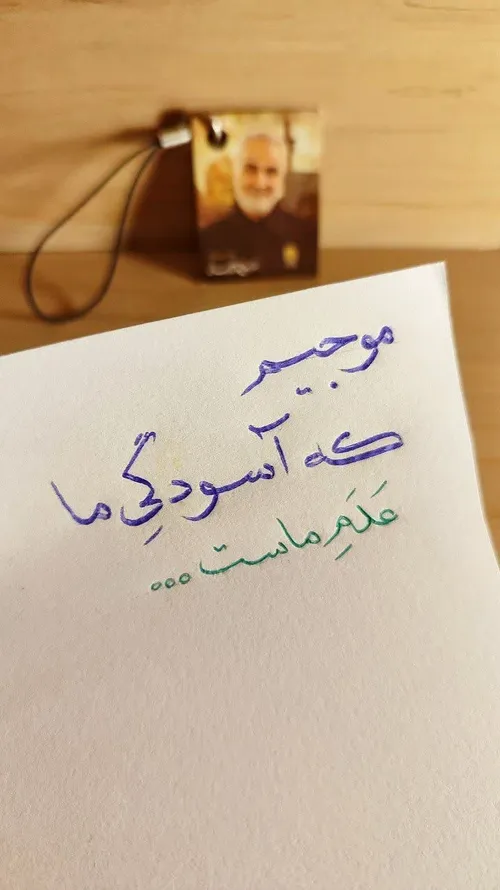 موجیم
که آسودگیِ ما
عَدَمِ ماست...